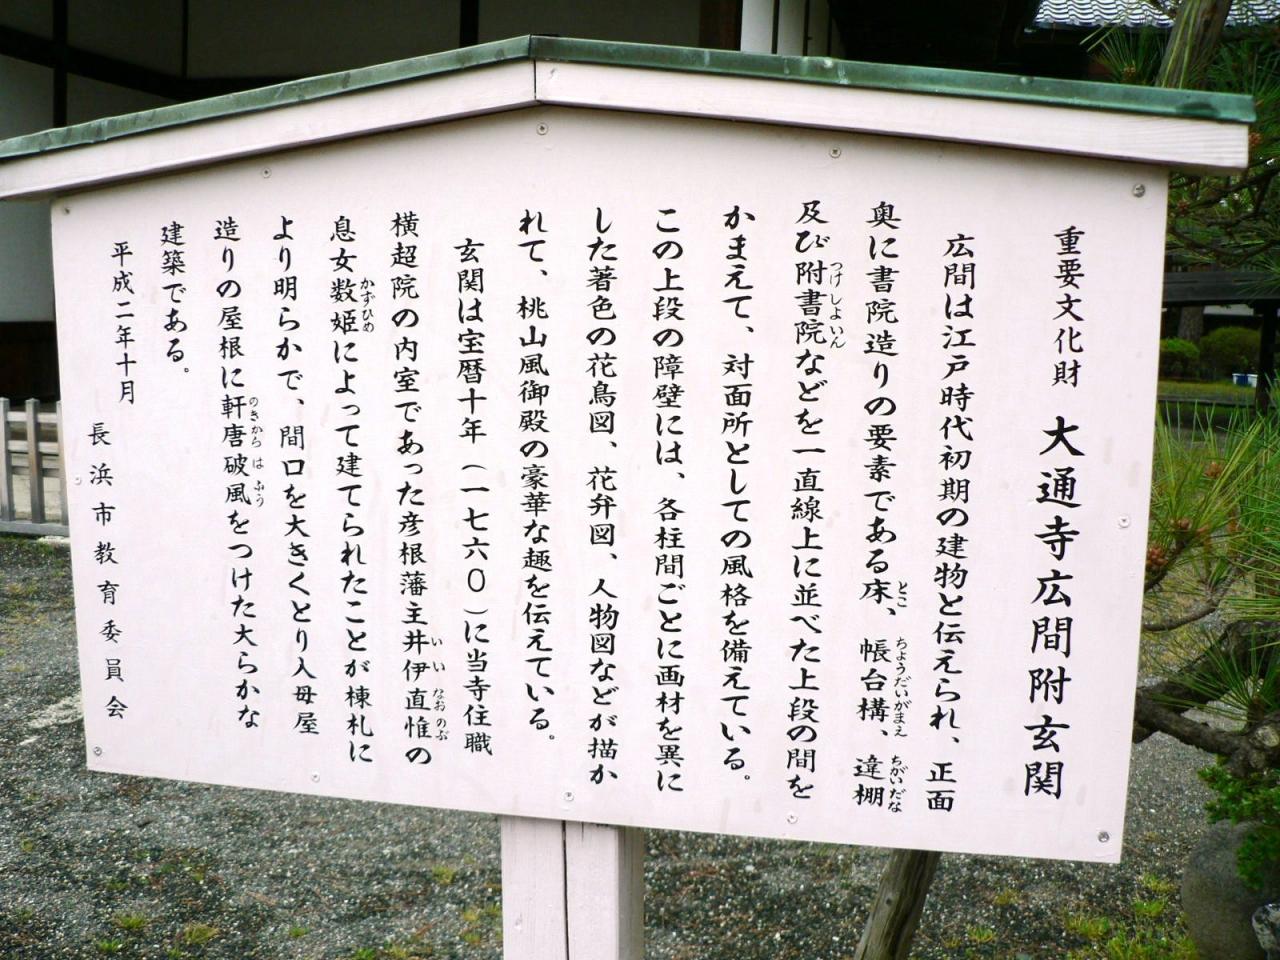 重要文化財　大通寺広間附玄関
広間は江戸時代初期の建物と伝えられ、正面
奥に書院造りの要素である床、帳台構、違棚
とこ
ちようだいがまえ
ちがいだな
及び附書院などを一直線上に並べた上段の間を
つけしよいん
かまえて、対面所としての風格を備えている。
この上段の障壁には、各柱間ごとに画材を異に
した著色の花鳥図、花弁図、人物図などが描か
れて、桃山風御殿の豪華な趣を伝えている。
玄関は宝暦十年（一七六〇）に当寺住職
横超院の内室であった彦根藩主井伊直惟の
いい
なおのぶ
息女数姫によって建てられたことが棟札に
かずひめ
より明らかで、間口を大きくとり入母屋
造りの屋根に軒唐破風をつけた大らかな
のきからはふう
建築である。
平成二年十月
長浜市教育委員会